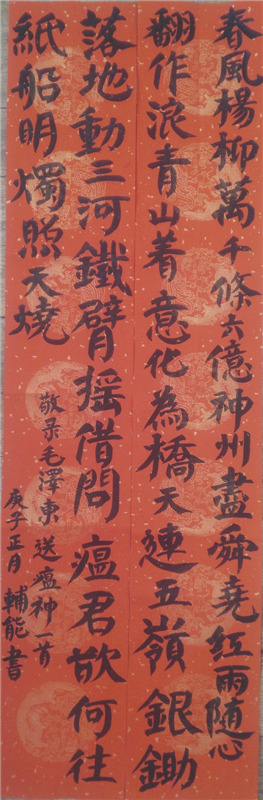 春風楊柳萬千條六億神州盡舜堯红雨隨心
翻作浪青山着意化為橋天連五嶺銀鋤
落地動三河鐵臂摇借問瘟君欲何往
紙船明燭照天燒
敬录毛澤東送瘟神一首
庚子正月輔能書